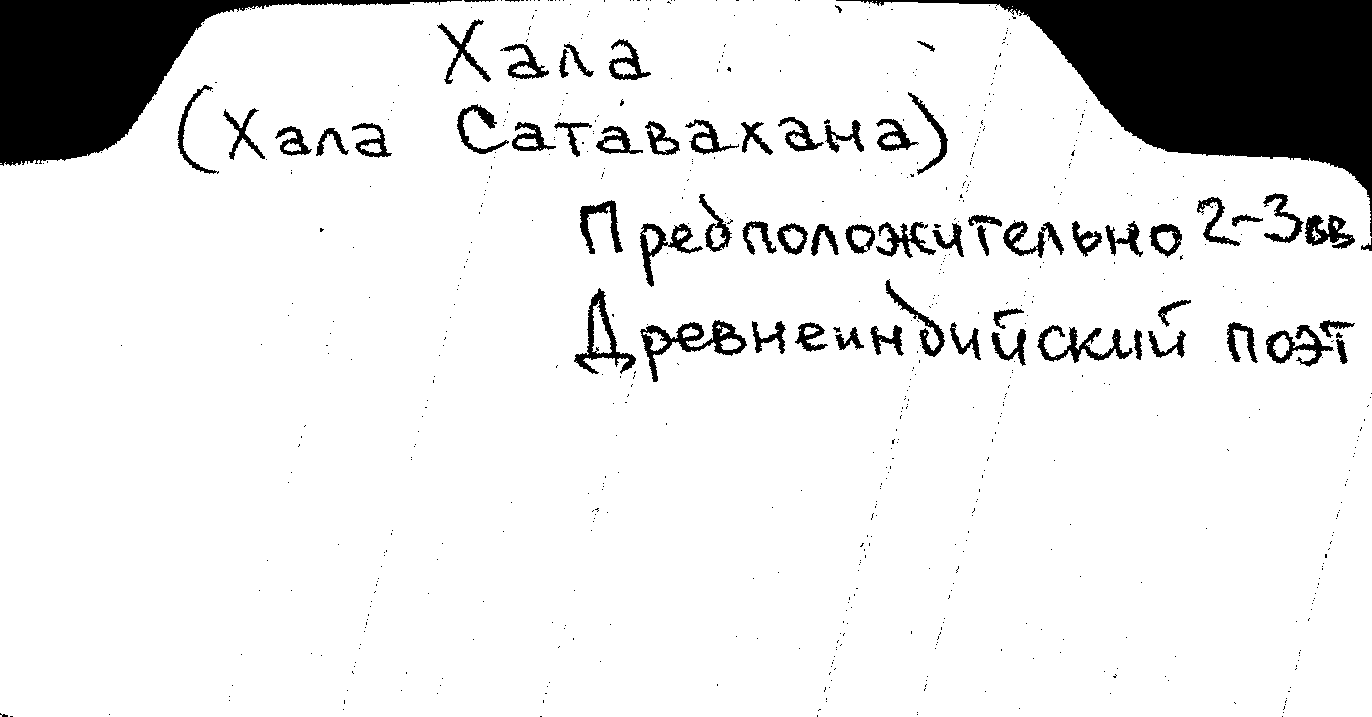 Хала
(Хала Сатавахана)
Предположительно 2-3 вв.
Древнеиндийский поэт